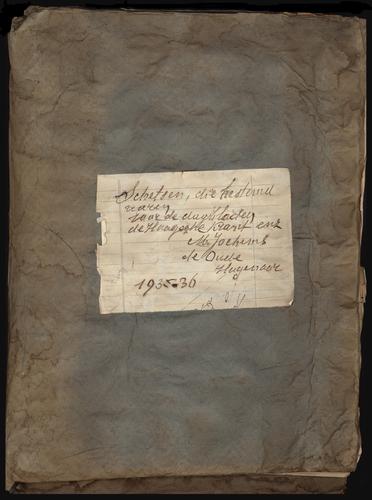 Schetsen, die bestemd
waren
voor de dagbladen
de Haagsche Krant enz
M. Jochems
de Oude
Hagenaar
1935-36